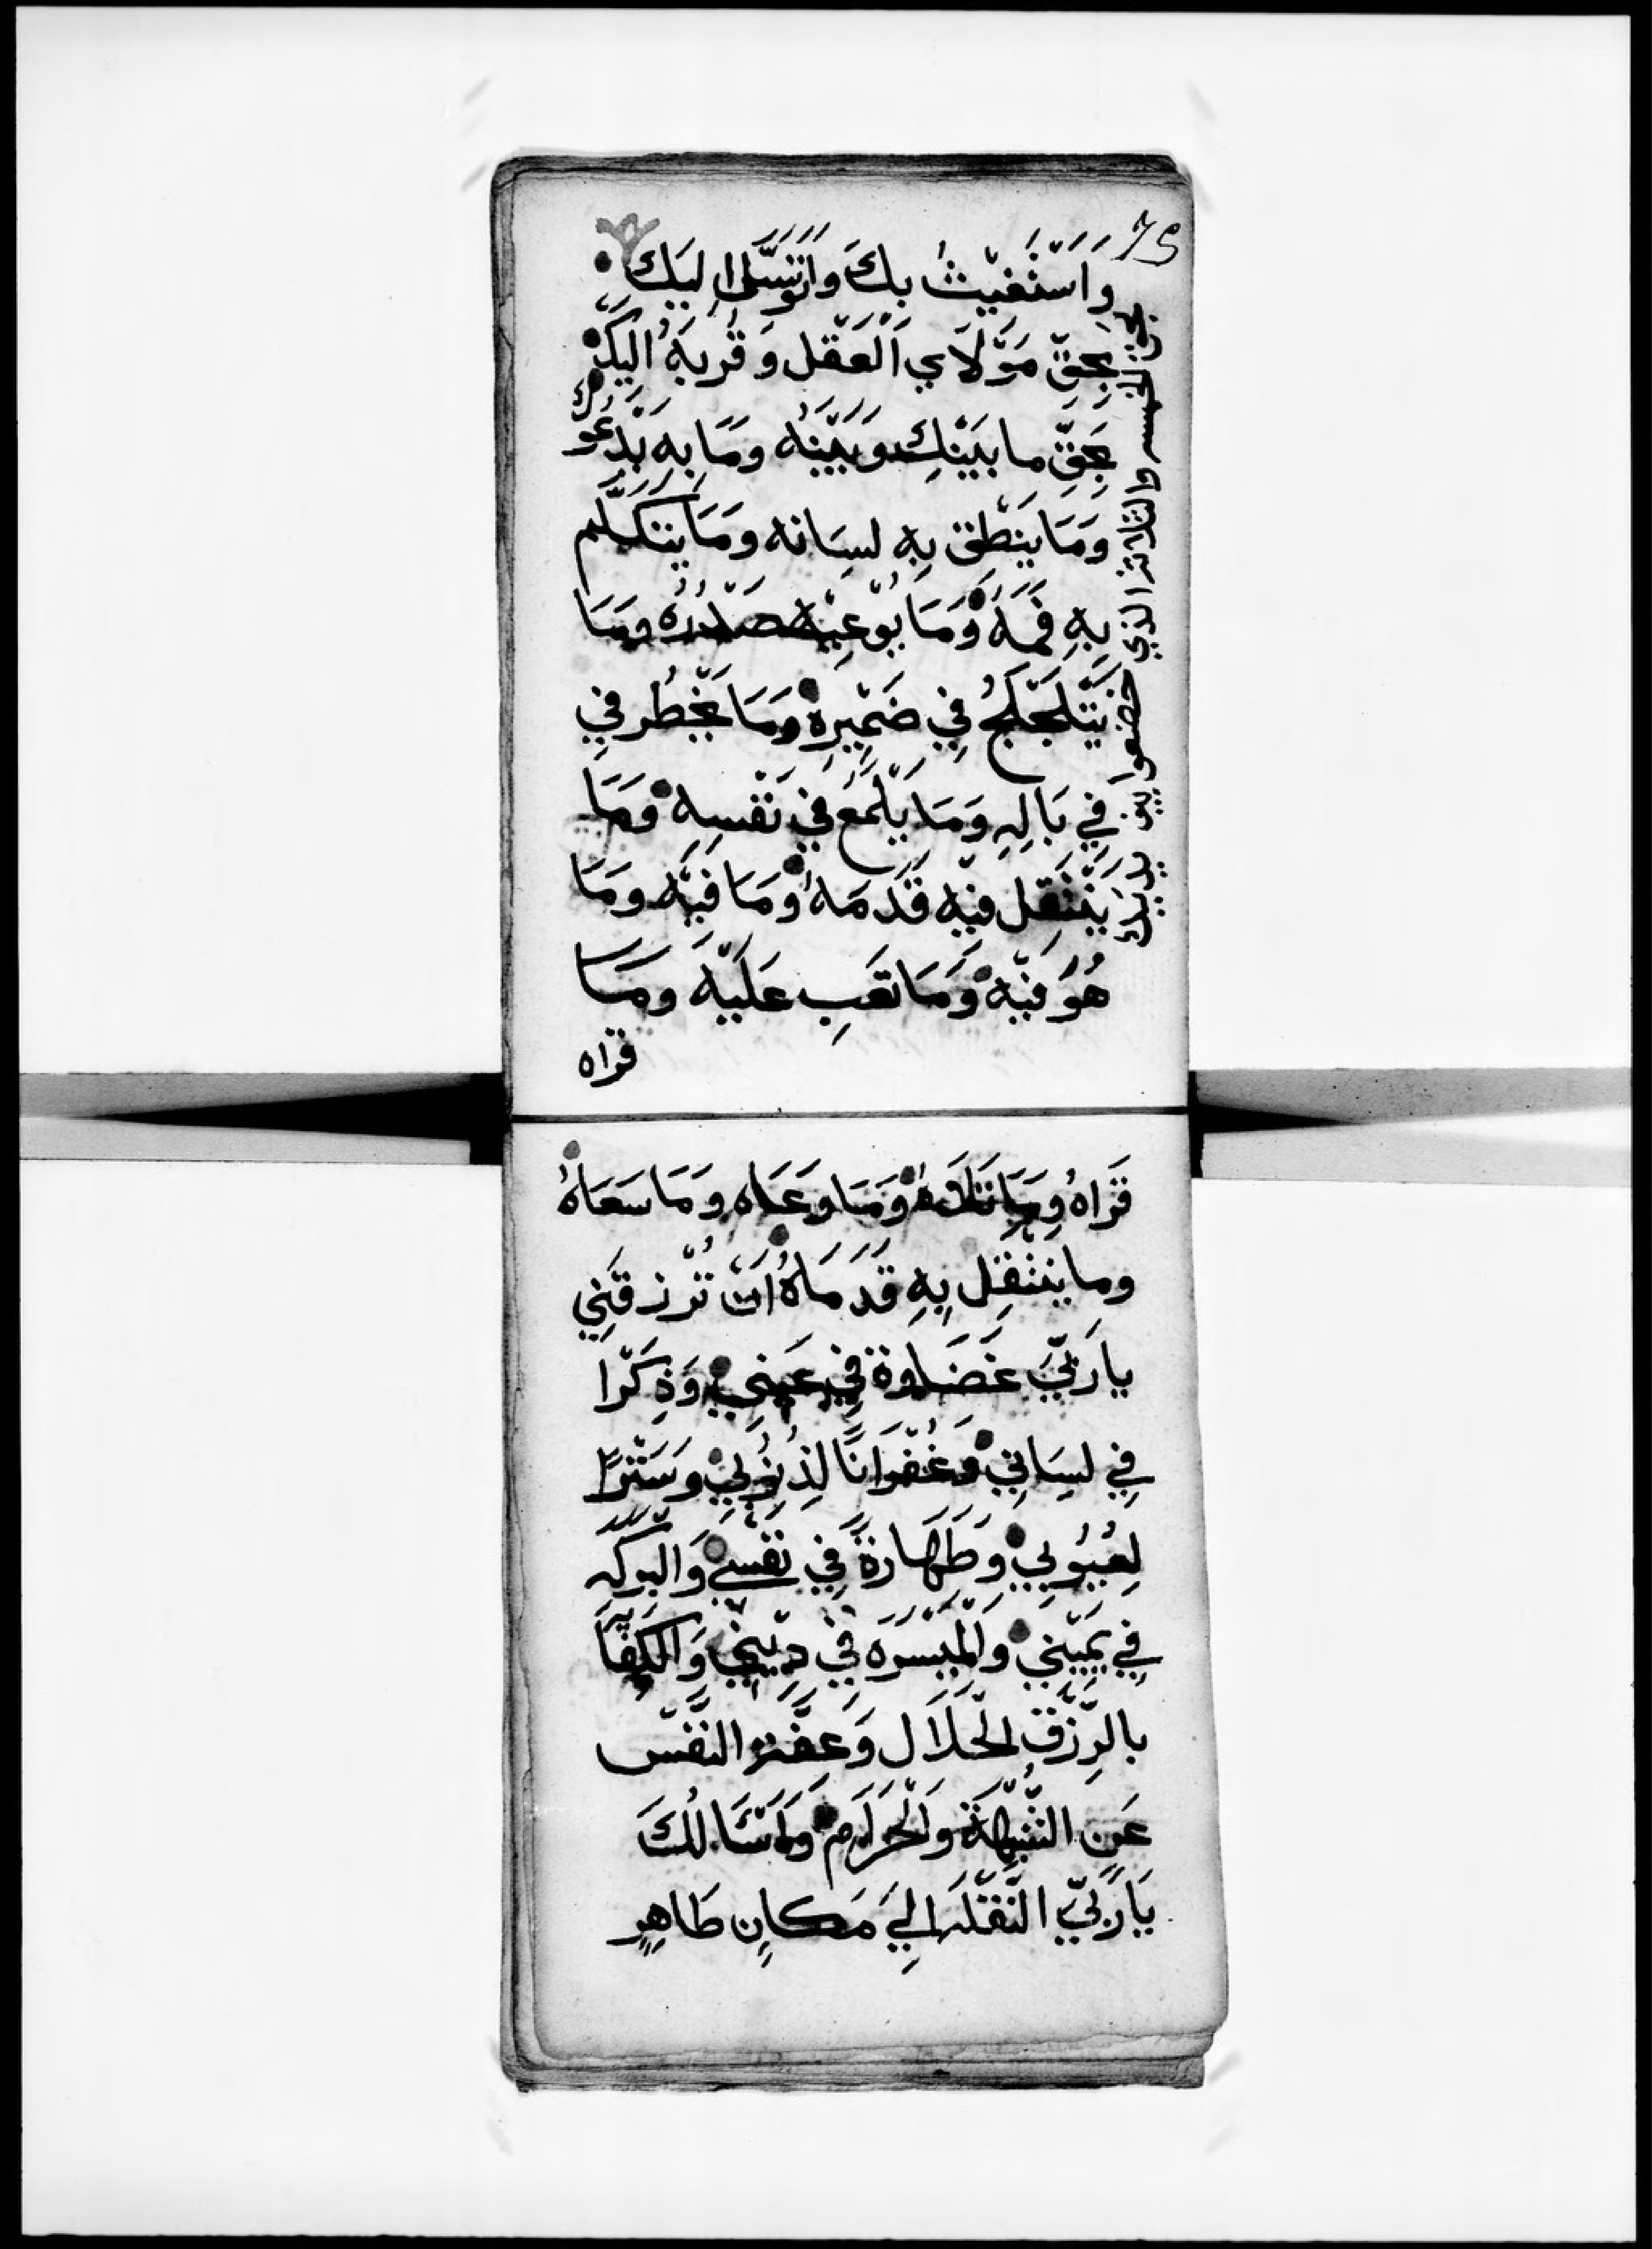 75
وَاَسْتَغيْثُ بكَ وَاَتَوَسَّل اِليَك
بِحقّ مَوْلَاي اَلْعَقْل وَقُربَهُ اليكْ
بِحَقّ ما بيَنْكَ وبَيْنهُ ومَا به يَدْعُوك
وَمَا يَنطق بِهِ لسِانه وَمَا يتكلَّم
بِهِ فَمهُ وَمَا يُوْعِيْه صَدْرُه ومَا
يَتَلَجْلَجُ فِي ضَمِيرِهْ وَمَا يَخْطُر في
فِي بَالِهِ وَمَا يَلْمَع في نَفسِهِ ومَا
يَنْتَقِل فيْهِ قَدَمَهُ وَمَا فيْه ومَا
هُوَ فيْه وَمَا تعَب عَليْه ومَا
قراه
بحق الخمسه والثلاثة الذي خضعوا بين يديك
قَرَاهُ وَمَا تَلَاهُ وَمَا وَعَاه وَمَا سَعَاهُ
وما ينتقِل بِهِ قَدَمَاهُ اَنْ تُرْزقَنِي
يا رَبّيَ غَضَاوة فِي عَيني وَذِكْرًا
فِي لسِاني وَغُفْرَانًا لِذنُوبي وسَتْرًا
لِعُيُوبي وَطَهَارةً فِي نفْسي وَالبركه
فِي يَمَيْني وَالمَيْسَرَه فِي دِيْنِي وَالكِفَا
بالرِّزْق الحَلَال وَعفَّة النفْس
عَن الشُّبْهَة وَالْحَرَام وَاَسْأَلُكَ
يَا رَبّيَ النَّقْله الي مَكانٍ طَاهِرٍ